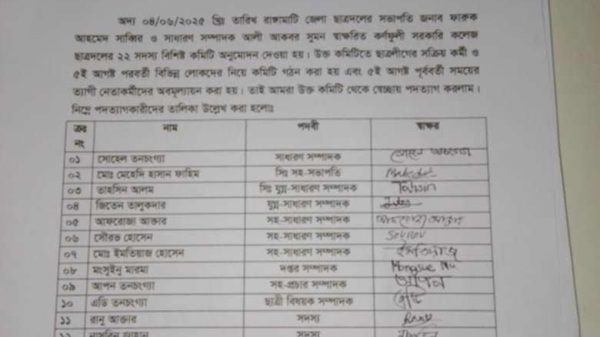 অদ্য ০৪/০৬/২০২৫ খ্রিঃ তারিখ রাঙ্গামাটি জেলা ছাত্রদলের সভাপতি জনাব ফারুক
আহমেদ সাব্বির ও সাধারণ সম্পাদক আলী আকবর সুমন স্বাক্ষরিত কর্ণফুলী সরকারি কলেজ
ছাত্রদলের ২২ সদস্য বিশিষ্ট কমিটি অনুমোদন দেওয়া হয়। উক্ত কমিটিতে ছাত্রলীগের সক্রিয় কর্মী ও
৫ই আগষ্ট পরবর্তী বিভিন্ন লোকদের নিয়ে কমিটি গঠন করা হয় এবং ৫ই আগষ্ট পূর্ববর্তী সময়ের
ত্যাগী নেতাকর্মীদের অবমূল্যায়ন করা হয়। তাই আমরা উক্ত কমিটি থেকে স্বেচ্ছায় পদত্যাগ করলাম।
নিম্নে পদত্যাগকারীদের তালিকা উল্লেখ করা হলোঃ
ক্রঃ নং নাম পদবী স্বাক্ষর
০১ সোহেল তনচংগ্যা সাধারণ সম্পাদক
০২ মোঃ মেহেদি হাসান ফাহিম সিঃ সহ-সভাপতি
০৩ তাহসিন আলম সিঃ যুগ্ম-সাধারণ সম্পাদক Tahsin
০৪ জিতেন তালুকদার যুগ্ম-সাধারণ সম্পাদক
০৫ আফরোজা আক্তার সহ-সাধারণ সম্পাদক
০৬ সৌরভ হোসেন সহ-সাধারণ সম্পাদক Sourov
০৭ মোঃ ইমতিয়াজ হোসেন সহ-সাধারণ সম্পাদক ইমতিয়াজ
০৮ মংসুইনু মারমা দপ্তর সম্পাদক
০৯ আপন তনচংগ্যা সহ-প্রচার সম্পাদক আপন
১০ এডি তনচংগ্যা ছাত্রী বিষয়ক সম্পাদক
১১ রানু আক্তার সদস্য Ranu
১২ নাসরিন জাহান সদস্য